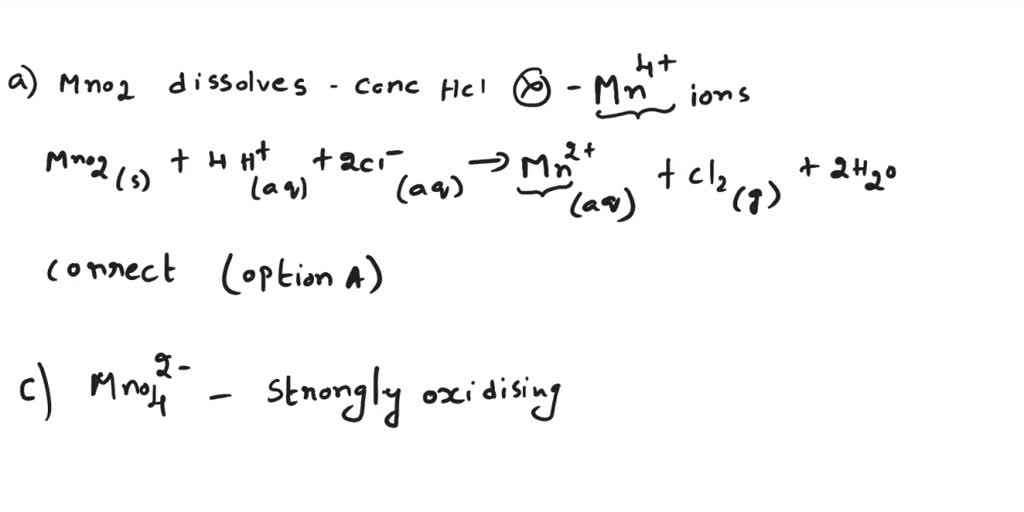 a) Mno2 dissolves - conc Hcl ⊗ - Mn⁴⁺ ions
Mno2(s) + 4 H⁺(aq) + 2cl⁻(aq) → Mn²⁺(aq) + cl₂(g) + 2H₂o
correct (option A)
c) Mno₄²⁻ - strongly oxidising